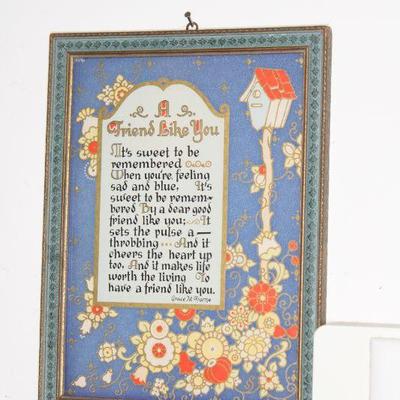 A
Friend Like You
It's sweet to be
remembered
When you're, feeling
sad and blue, It's
sweet to be remem-
bered By a dear good
friend like you; It
sets the pulse a—
throbbing --- And it
cheers the heart up
too, And it makes life
worth the living To
have a friend like you.